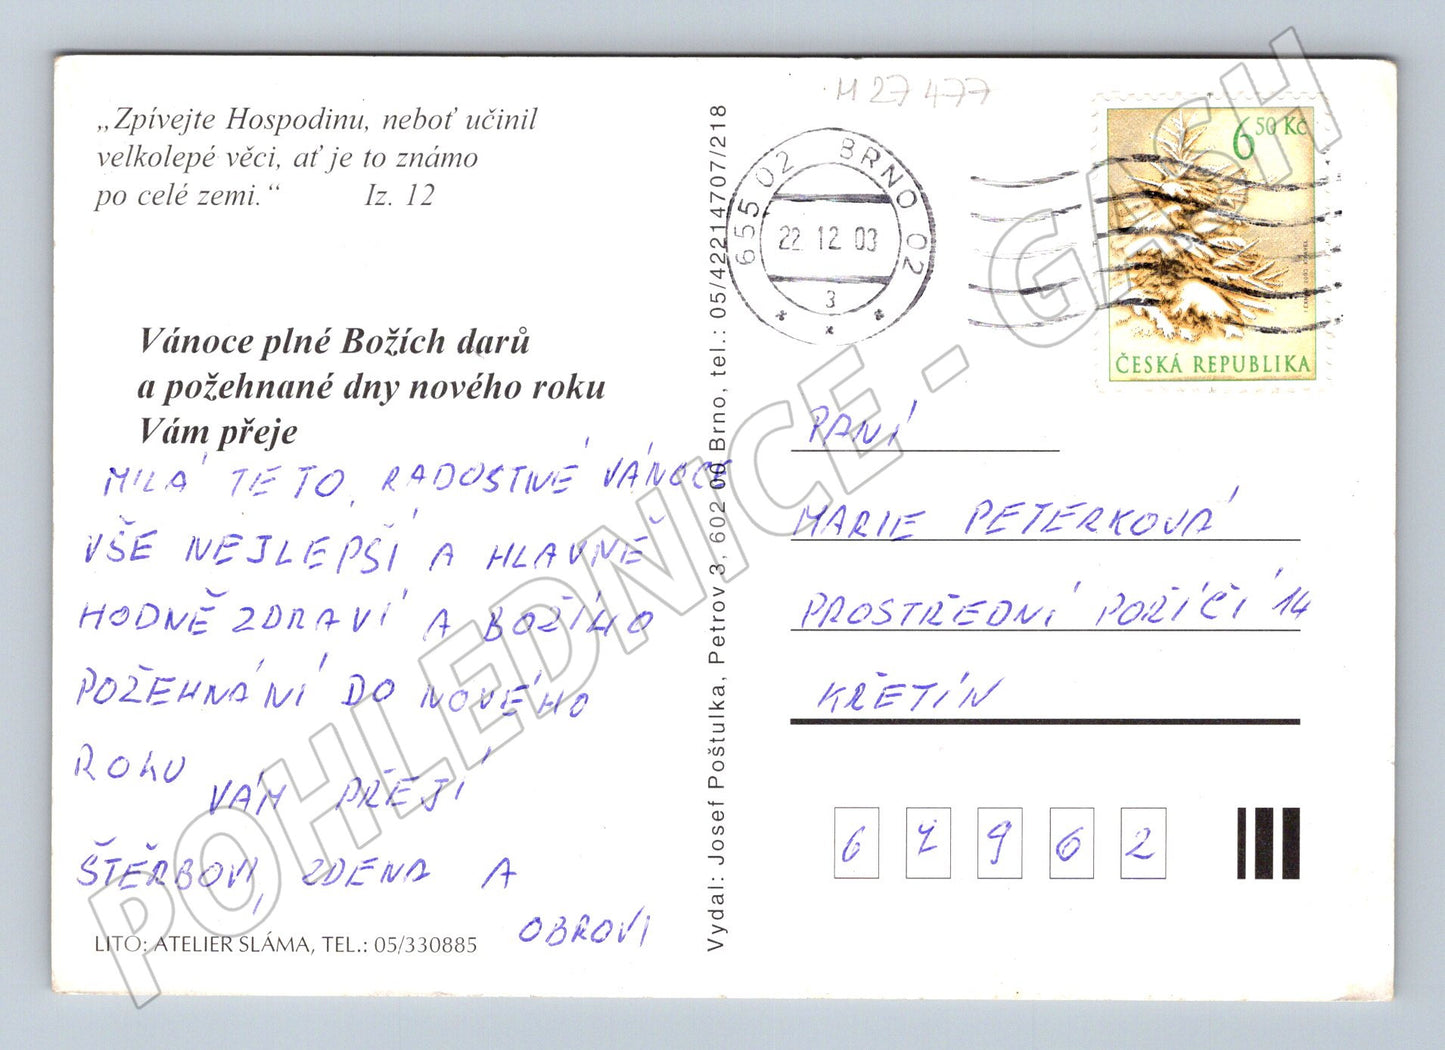 M 27 477
„Zpívejte Hospodinu, neboť učinil
velkolepé věci, ať je to známo
po celé zemi.“ Iz. 12
Vánoce plné Božích darů
a požehnané dny nového roku
Vám přeje
MILÁ TETO, RADOSTNÉ VÁNOCE
VŠE NEJLEPŠÍ A HLAVNĚ
HODNĚ ZDRAVÍ A BOŽÍHO
POŽEHNÁNÍ DO NOVÉHO
ROKU
VÁM PŘEJÍ
ŠTĚRBOVI, ZDENA A
OBROVI
LITO: ATELIER SLÁMA, TEL.: 05/330885
Vydal: Josef Poštulka, Petrov 3, 602 00 Brno, tel.: 05/42214707/218
655 02 BRNO 02
22.12.03
3
6 50 Kč
ČESKÁ REPUBLIKA
PANÍ
MARIE PETERKOVÁ
PROSTŘEDNÍ POŘÍČÍ 14
KŘETÍN
67962
POHLEDNICE - GASH